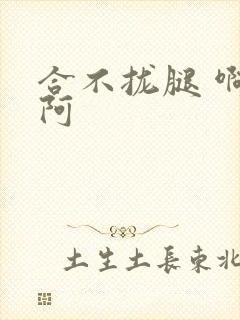 合不拢腿 啊
阿
土生土長東北